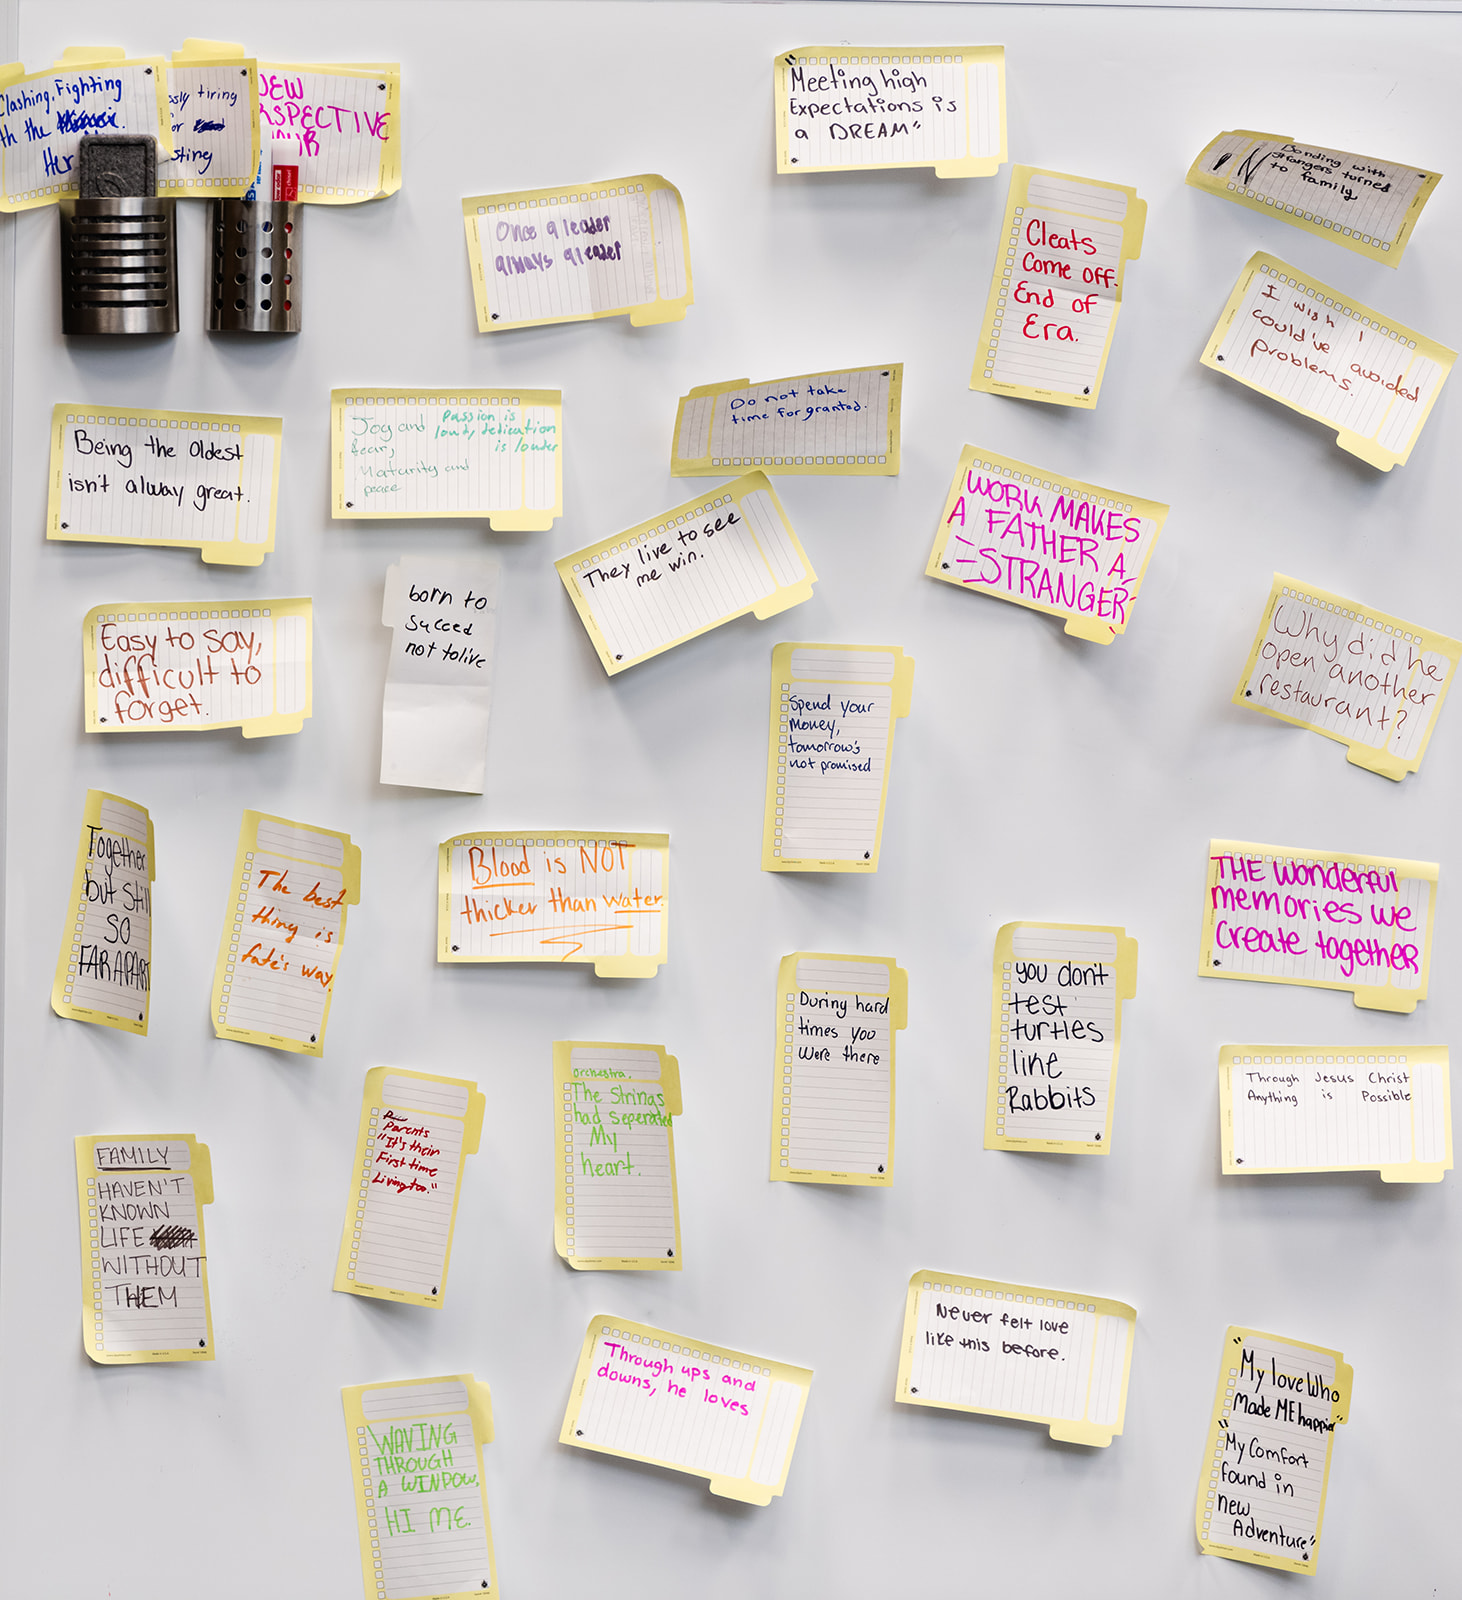 Clashing, Fighting
the
Her
tiring
or
NEW
PERSPECTIVE
"Meeting high
Expectations is
a DREAM"
Bonding with
strangers turned
to family
Once a leader
always a leader
Cleats
Come off.
End of
Era.
I wish I
could've avoided
problems.
Being the Oldest
isn't alway great.
Joy and
fear,
Maturity and
peace
Passion is
loud, dedication
is louder
Do not take
time for granted.
They live to see
me win.
WORK MAKES
A FATHER A
-STRANGER-
born to
succeed
not to live
Easy to say,
difficult to
forget.
Why did he
open another
restaurant?
Spend your
money,
tomorrow's
not promised
Together
but still
SO
FAR APART
The best
thing is
fate's way.
Blood is NOT
thicker than water.
THE wonderful
memories we
create together
During hard
times you
were there
you don't
test
turtles
like
Rabbits
Through Jesus Christ
Anything is Possible
FAMILY
HAVEN'T
KNOWN
LIFE
WITHOUT
THEM
Parents
"It's their
First time
Living too."
orchestra.
The Strings
had seperated
My
heart.
Never felt love
like this before.
Through ups and
downs, he loves
"My love who
Made ME happier"
"My Comfort
found in
new
Adventure"
WAVING
THROUGH
A WINDOW,
HI ME.